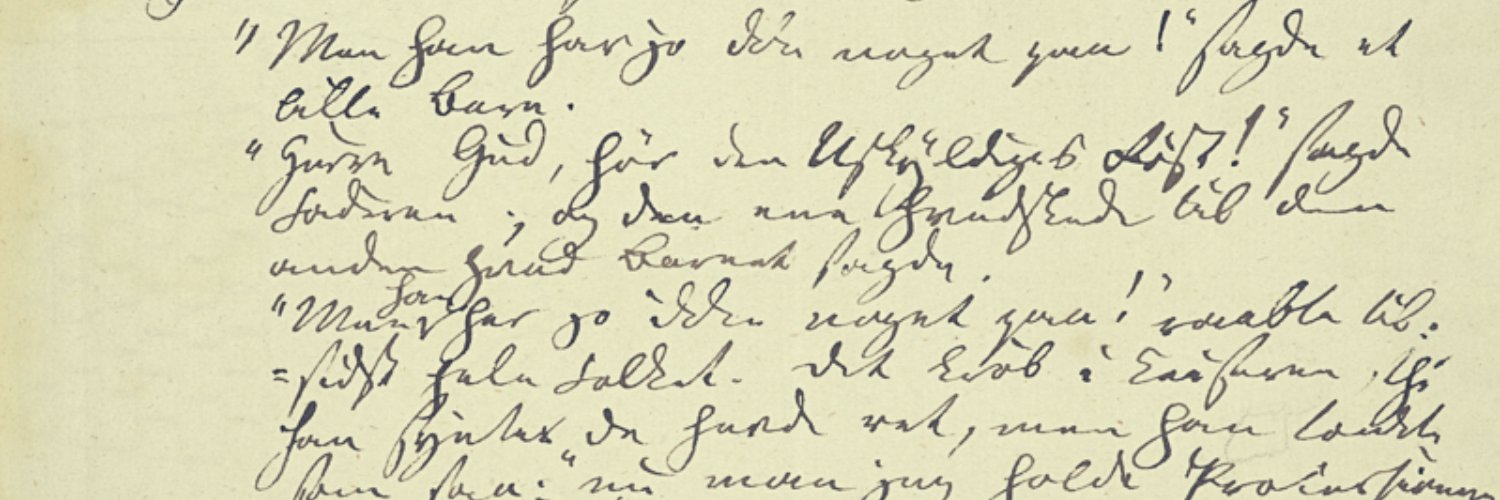 "Men han har jo ikke noget paa!" sagde et
lille Barn.
"Herre Gud, hør den Uskyldiges Røst!" sagde
Faderen; og den ene hvidskede til den
anden hvad Barnet sagde.
"Men han har jo ikke noget paa! raabte til-
=sidst hele Folket. Det krøb i Keiseren, thi
han syntes "de havde ret, men han tænkte
som saa: "nu maa jeg holde Processionen